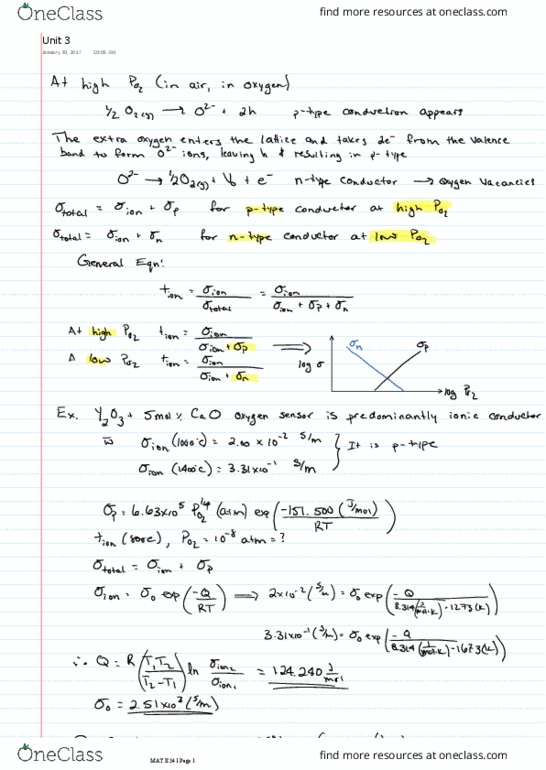 OneClass find more resources at oneclass.com
Unit 3
January 30, 2017 10:05 AM
At high Po₂ (in air, in oxygen)
½ O₂(g) → O²⁻ + 2h p-type conduction appears
The extra oxygen enters the lattice and takes 2e⁻ from the valence
band to form O²⁻ ions, leaving h & resulting in p-type
O²⁻ → ½O₂(g) + V₀ + e⁻ n-type conductor → oxygen vacancies
σtotal = σion + σp for p-type conductor at high Po₂
σtotal = σion + σn for n-type conductor at low Po₂
General Eqn:
tion = σion/σtotal = σion/(σion + σp + σn)
At high Po₂ tion = σion/(σion + σp) ⟹
low Po₂ tion = σion/(σion + σn)
log σ σn σp log Po₂
Ex. Y₂O₃ + 5mol% CaO oxygen sensor is predominantly ionic conductor
σion (1000°C) = 2.00 × 10⁻² S/m } It is p-type
σion (1400°C) = 3.31×10⁻¹ S/m
σp = 6.63×10⁵ Po₂^¼ (atm) exp(-151.500 (J/mol)/RT)
tion (800°C), Po₂ = 10⁻⁸ atm = ?
σtotal = σion + σp
σion = σ₀ exp(-Q/RT) ⟹ 2×10⁻² (S/m) = σ₀ exp(-Q/(8.314(J/mol·K)·1273(K)))
3.31×10⁻¹ (S/m) = σ₀ exp(-Q/(8.314(J/mol·K)·1673(K)))
∴ Q = R(T₁T₂/(T₂-T₁)) ln σion₂/σion₁ = 124.240 J/mol
σ₀ = 2.51×10³ (S/m)
MAT E341 Page 1
OneClass find more resources at oneclass.com